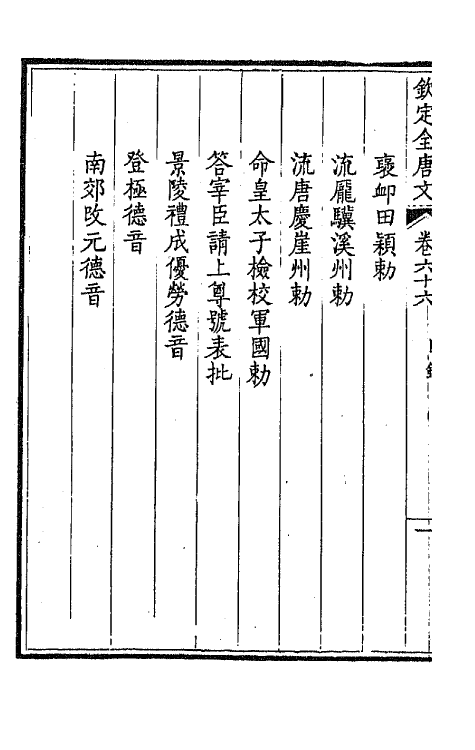 欽定全唐文 卷六十六 目錄 一
襃衈田穎勅
流龎驥溪州勅
流唐慶崖州勅
命皇太子檢校軍國勅
答宰臣請上尊號表批
景陵禮成優勞德音
登極德音
南郊改元德音